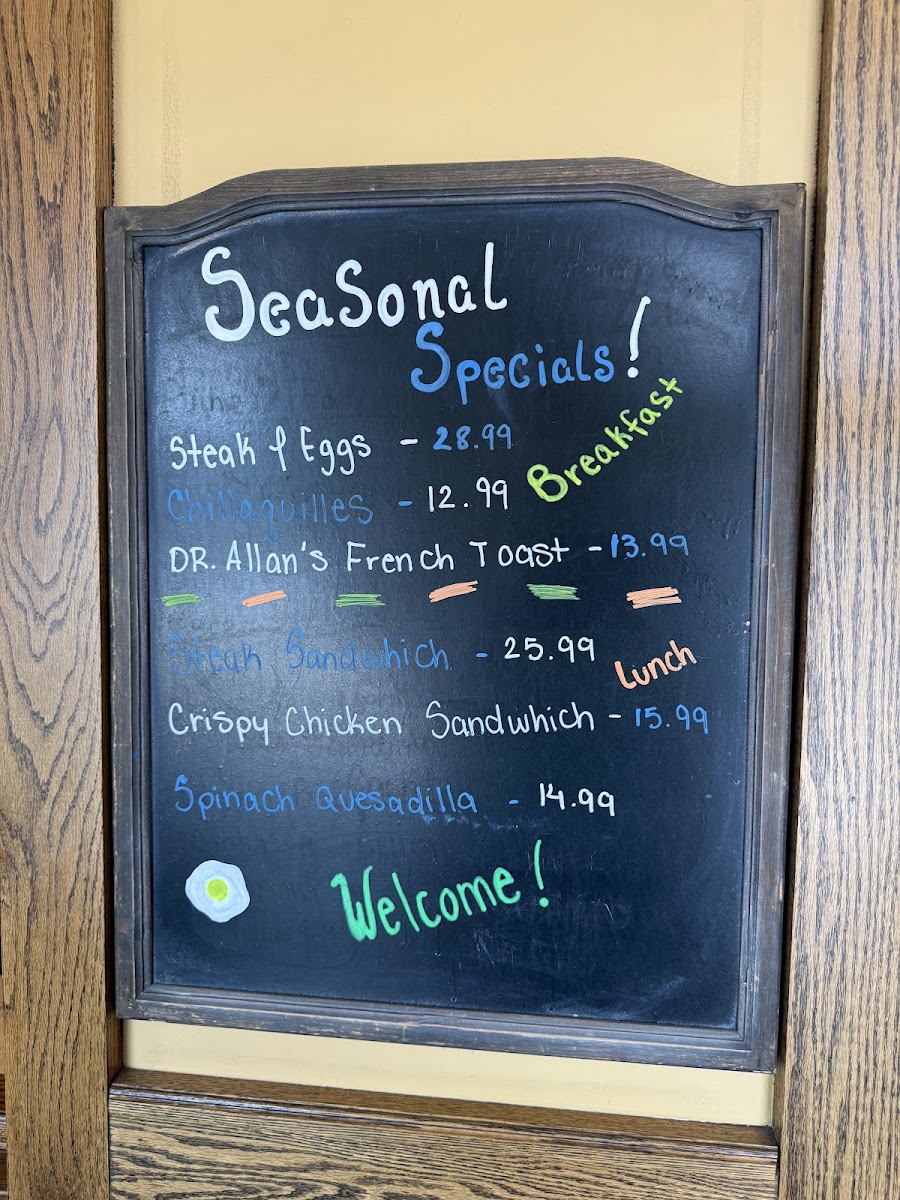 Seasonal
Specials!
Breakfast
Steak & Eggs - 28.99
Chillaquilles - 12.99
DR. Allan's French Toast - 13.99
Lunch
Steak Sandwhich - 25.99
Crispy Chicken Sandwhich - 15.99
Spinach Quesadilla - 14.99
Welcome!